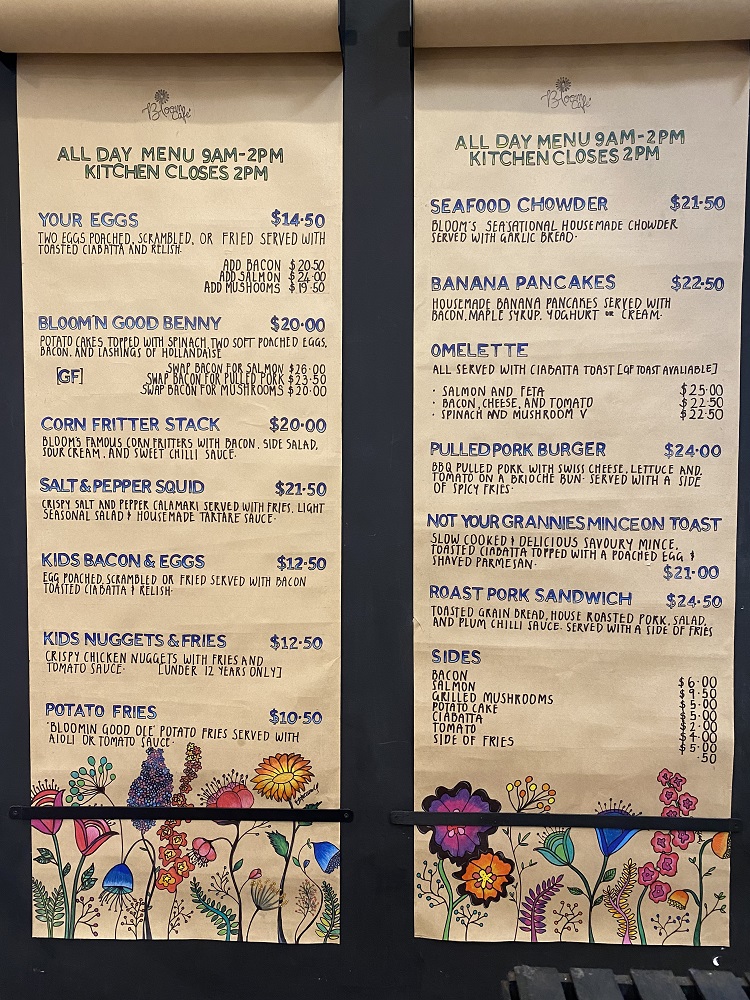 Bloom Café
ALL DAY MENU 9AM-2PM
KITCHEN CLOSES 2PM
YOUR EGGS $14.50
TWO EGGS POACHED, SCRAMBLED, OR FRIED SERVED WITH
TOASTED CIABATTA AND RELISH.
ADD BACON $20.50
ADD SALMON $24.00
ADD MUSHOOMS $19.50
BLOOM'N GOOD BENNY $20.00
POTATO CAKES TOPPED WITH SPINACH TWO SOFT POACHED EGGS,
BACON, AND LASHINGS OF HOLLANDAISE
[GF]
SWAP BACON FOR SALMON $26.00
SWAP BACON FOR PULLED PORK $23.50
SWAP BACON FOR MUSHROOMS $20.00
CORN FRITTER STACK $20.00
BLOOM'S FAMOUS CORN FRITTERS WITH BACON, SIDE SALAD,
SOUR CREAM, AND SWEET CHILLI SAUCE.
SALT & PEPPER SQUID $21.50
CRISPY SALT AND PEPPER CALAMARI SERVED WITH FRIES, LIGHT
SEASONAL SALAD & HOUSEMADE TARTARE SAUCE.
KIDS BACON & EGGS $12.50
EGG POACHED, SCRAMBLED OR FRIED SERVED WITH BACON
TOASTED CIABATTA & RELISH.
KIDS NUGGETS & FRIES $12.50
CRISPY CHICKEN NUGGETS WITH FRIES AND
TOMATO SAUCE. [UNDER 12 YEARS ONLY]
POTATO FRIES $10.50
'BLOOMIN GOOD OLE' POTATO FRIES SERVED WITH
AIOLI OR TOMATO SAUCE.
Bloom Café
ALL DAY MENU 9AM-2PM
KITCHEN CLOSES 2PM
SEAFOOD CHOWDER $21.50
BLOOM'S SEA'SATIONAL HOUSEMADE CHOWDER
SERVED WITH GARLIC BREAD.
BANANA PANCAKES $22.50
HOUSEMADE BANANA PANCAKES SERVED WITH
BACON, MAPLE SYRUP, YOGHURT OR CREAM.
OMELETTE
ALL SERVED WITH CIABATTA TOAST [GF TOAST AVALIABLE]
· SALMON AND FETA $25.00
· BACON, CHEESE, AND TOMATO $22.50
· SPINACH AND MUSHROOM V $22.50
PULLED PORK BURGER $24.00
BBQ PULLED PORK WITH SWISS CHEESE, LETTUCE AND
TOMATO ON A BRIOCHE BUN. SERVED WITH A SIDE
OF SPICY FRIES.
NOT YOUR GRANNIES MINCE ON TOAST
SLOW COOKED & DELICIOUS SAVOURY MINCE,
TOASTED CIABATTA TOPPED WITH A POACHED EGG &
SHAVED PARMESAN.
$21.00
ROAST PORK SANDWICH $24.50
TOASTED GRAIN BREAD, HOUSE ROASTED PORK, SALAD,
AND PLUM CHILLI SAUCE. SERVED WITH A SIDE OF FRIES
SIDES
BACON $6.00
SALMON $9.50
GRILLED MUSHROOMS $5.00
POTATO CAKE $5.00
CIABATTA $2.00
TOMATO $4.00
SIDE OF FRIES $5.00
.50